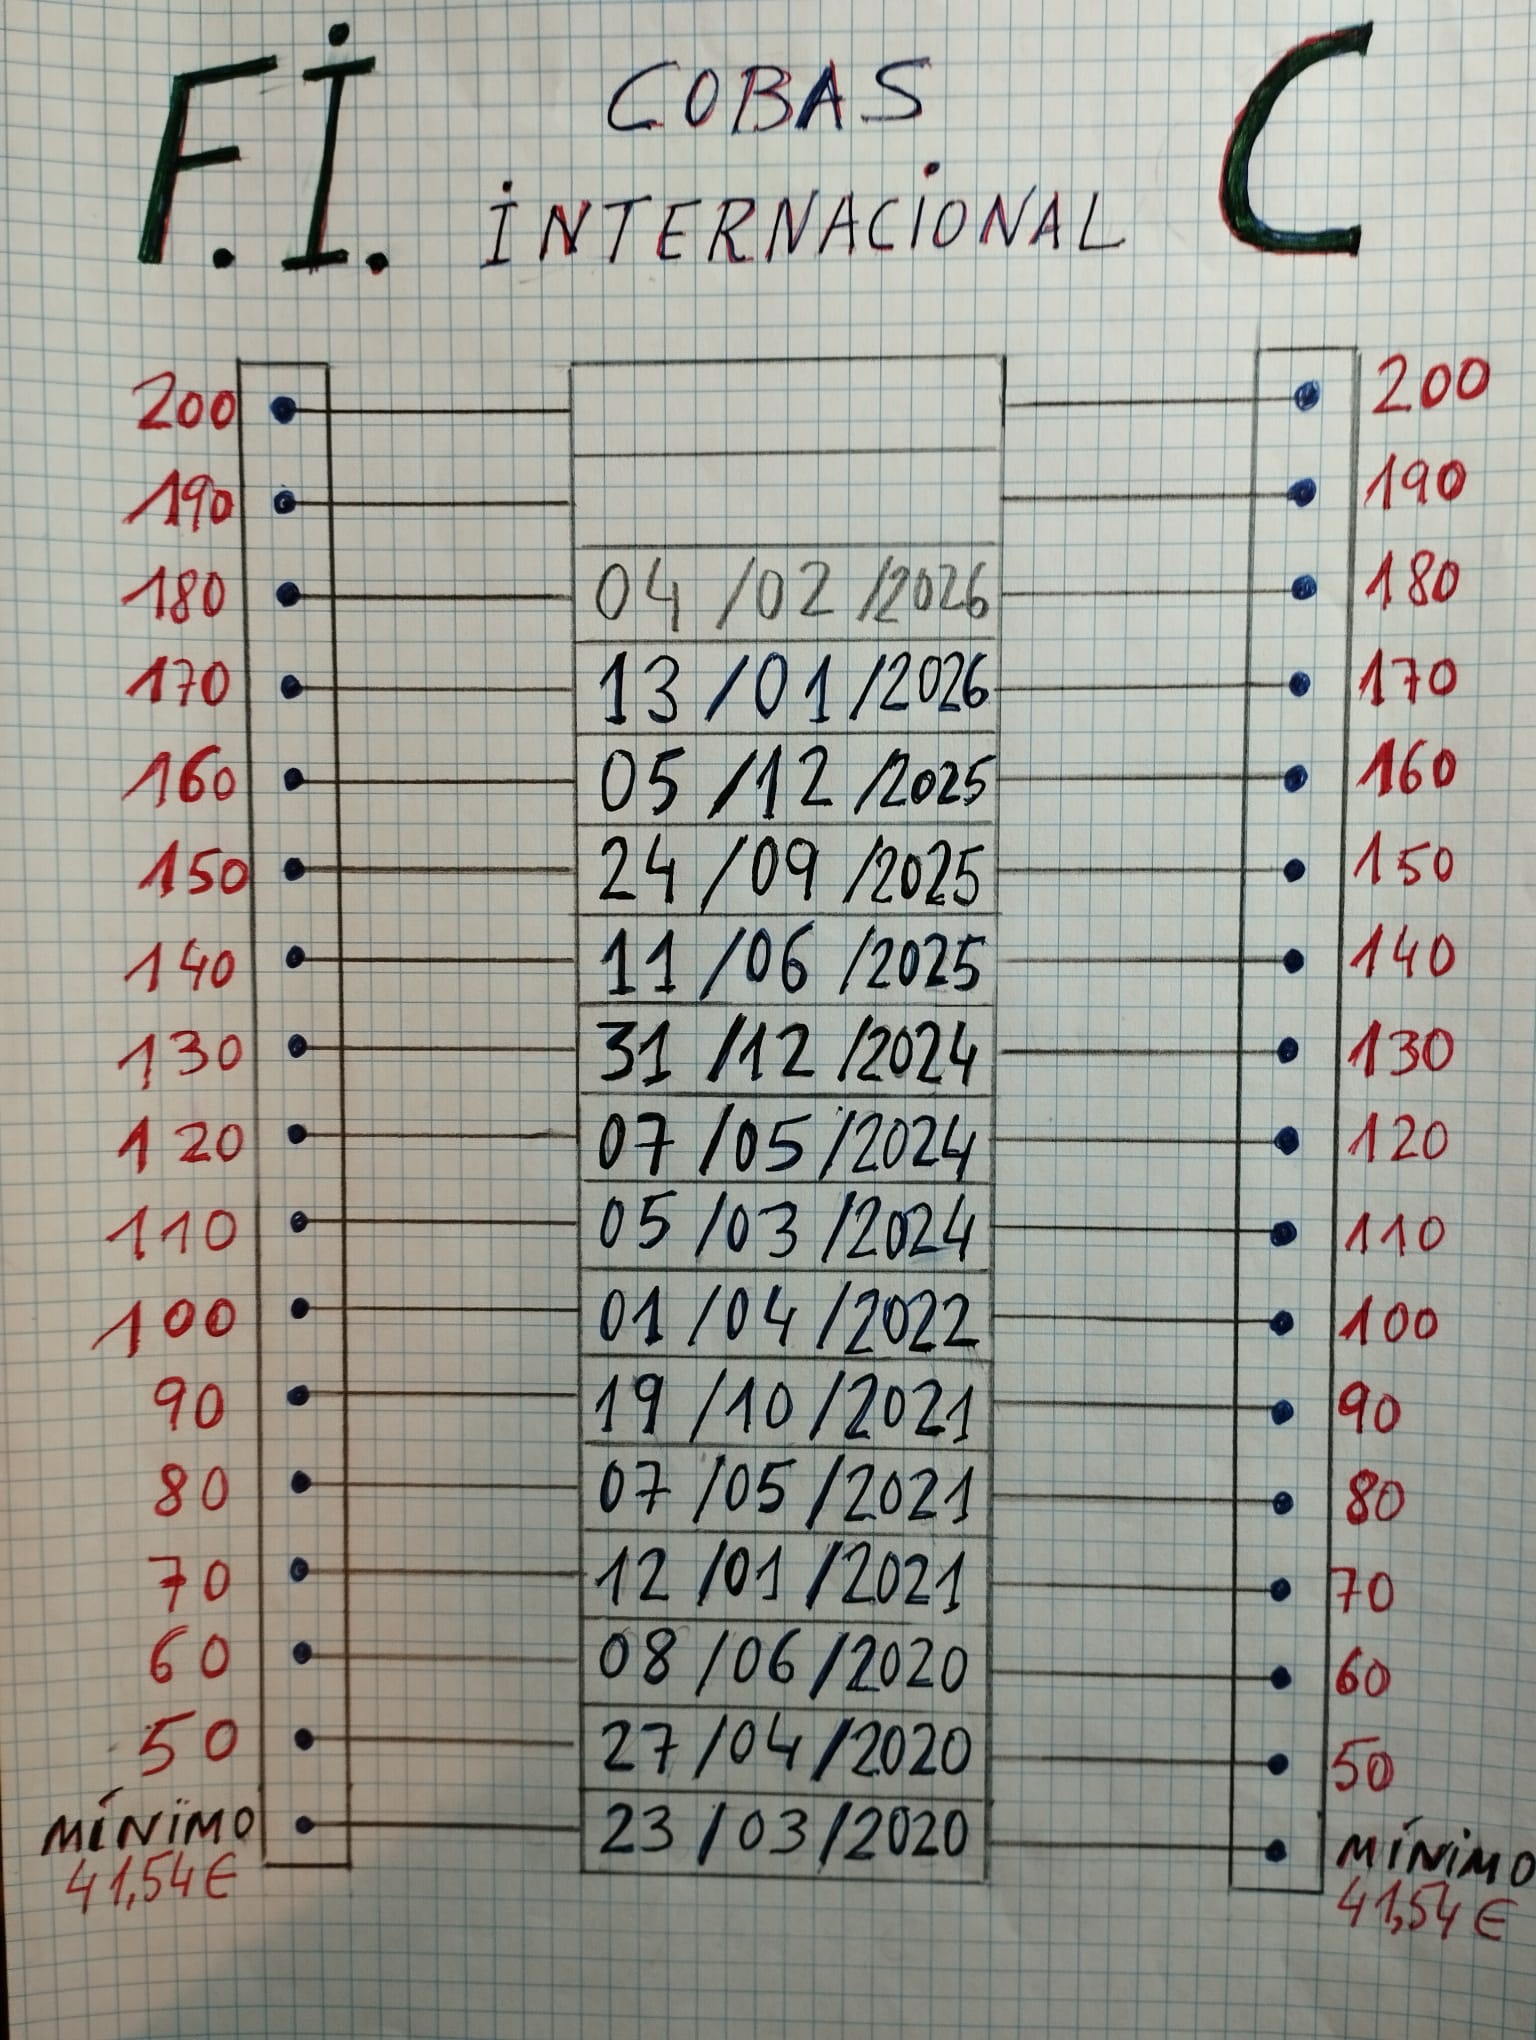 F.I. COBAS C
INTERNACIONAL
200 200
190 190
180 04/02/2026 180
170 13/01/2026 170
160 05/12/2025 160
150 24/09/2025 150
140 11/06/2025 140
130 31/12/2024 130
120 07/05/2024 120
110 05/03/2024 110
100 01/04/2022 100
90 19/10/2021 90
80 07/05/2021 80
70 12/01/2021 70
60 08/06/2020 60
50 27/04/2020 50
MÍNIMO 23/03/2020 MÍNIMO
41,54€ 41,54€